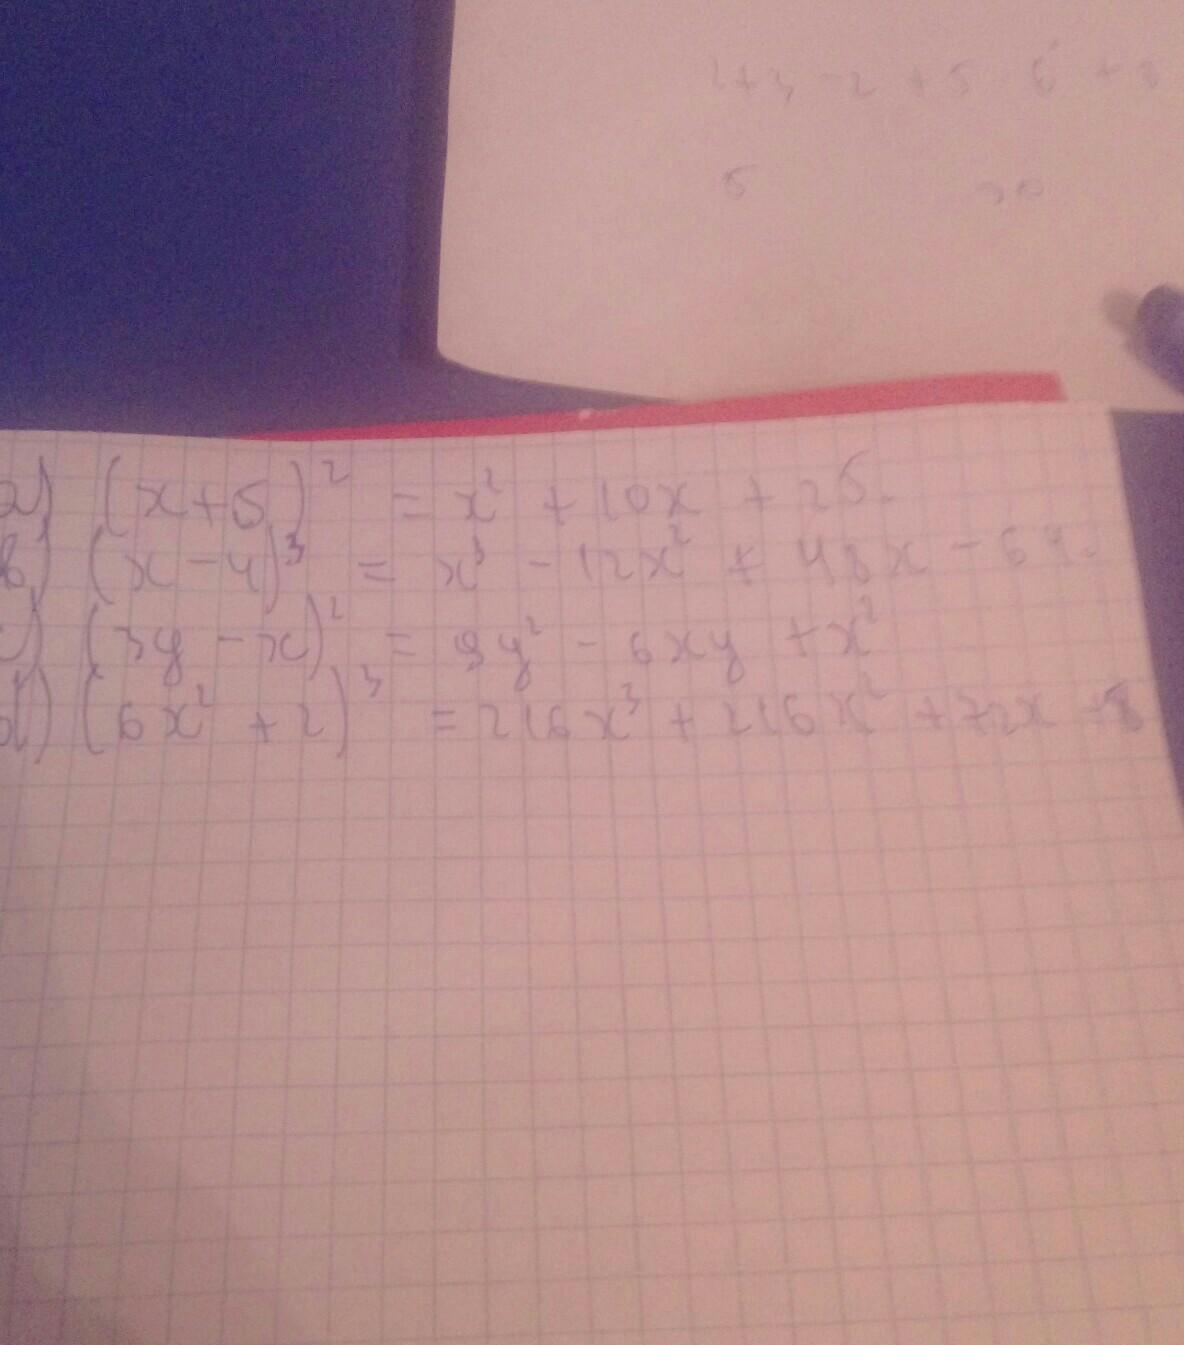 2+3 -2 +5 6 +
5 30
a) (x+5)² = x² + 10x + 25.
b) (x-4)³ = x³ - 12x² + 48x - 64.
c) (3y - x)² = 9y² - 6xy + x²
d) (6x² + 2)³ = 216x³ + 216x² + 72x + 8